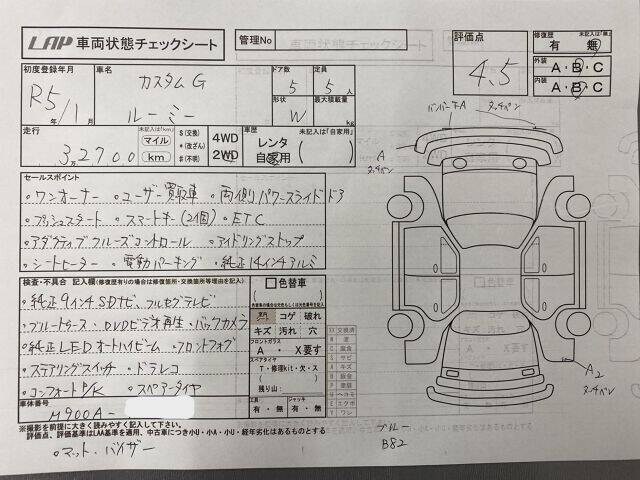 LAP 車両状態チェックシート
管理No
評価点
4.5
修復歴 未記入は「無」
有・無
外装
A・B・C
内装
A・B・C
初度登録年月
R5年/1月
車名
カスタムG
ルーミー
ドア数
5
定員
5人
形状
W
最大積載量
kg
走行
3万2700
未記入は「km」
マイル
km
$(交換)
*(改ざん)
#(不明)
4WD
2WD
車歴 未記入は「自家用」
レンタ
自家用
セールスポイント
・ワンオーナー ・ユーザー買取車 ・両側パワースライドドア
・プッシュスタート ・スマートキー(2個) ・ETC
・アダプティブクルーズコントロール ・アイドリングストップ
・シートヒーター ・電動パーキング ・純正14インチアルミ
検査・不具合 記入欄(修復歴有りの場合は修復箇所・交換箇所等理由を記入)
・純正9インチSDナビ、フルセグテレビ
・ブルートゥース・DVDビデオ再生・バックカメラ
・純正LEDオートハイビーム ・フロントフォグ
・ステアリングスイッチ ・ドラレコ
・コンフォートP/K ・スペアータイヤ
色替車
コゲ 破れ
キズ 汚れ 穴
フロントガラス
A ・ X要す
スペアタイヤ
T・修理kit・欠・ス
残り山:
工具
有・無
ジャッキ
有・無
車体番号
M900A-
※撮影を前提に大きく読みやすく記入して下さい。
評価点、評価基準はLAA基準を適用、中古車につき小U・小A・小U・経年劣化はあるものとする
・マット・バイザー
バンパー下A
タッチペン
A
タッチペン
A2
タッチペン
XX 交換済
ブルー
B82